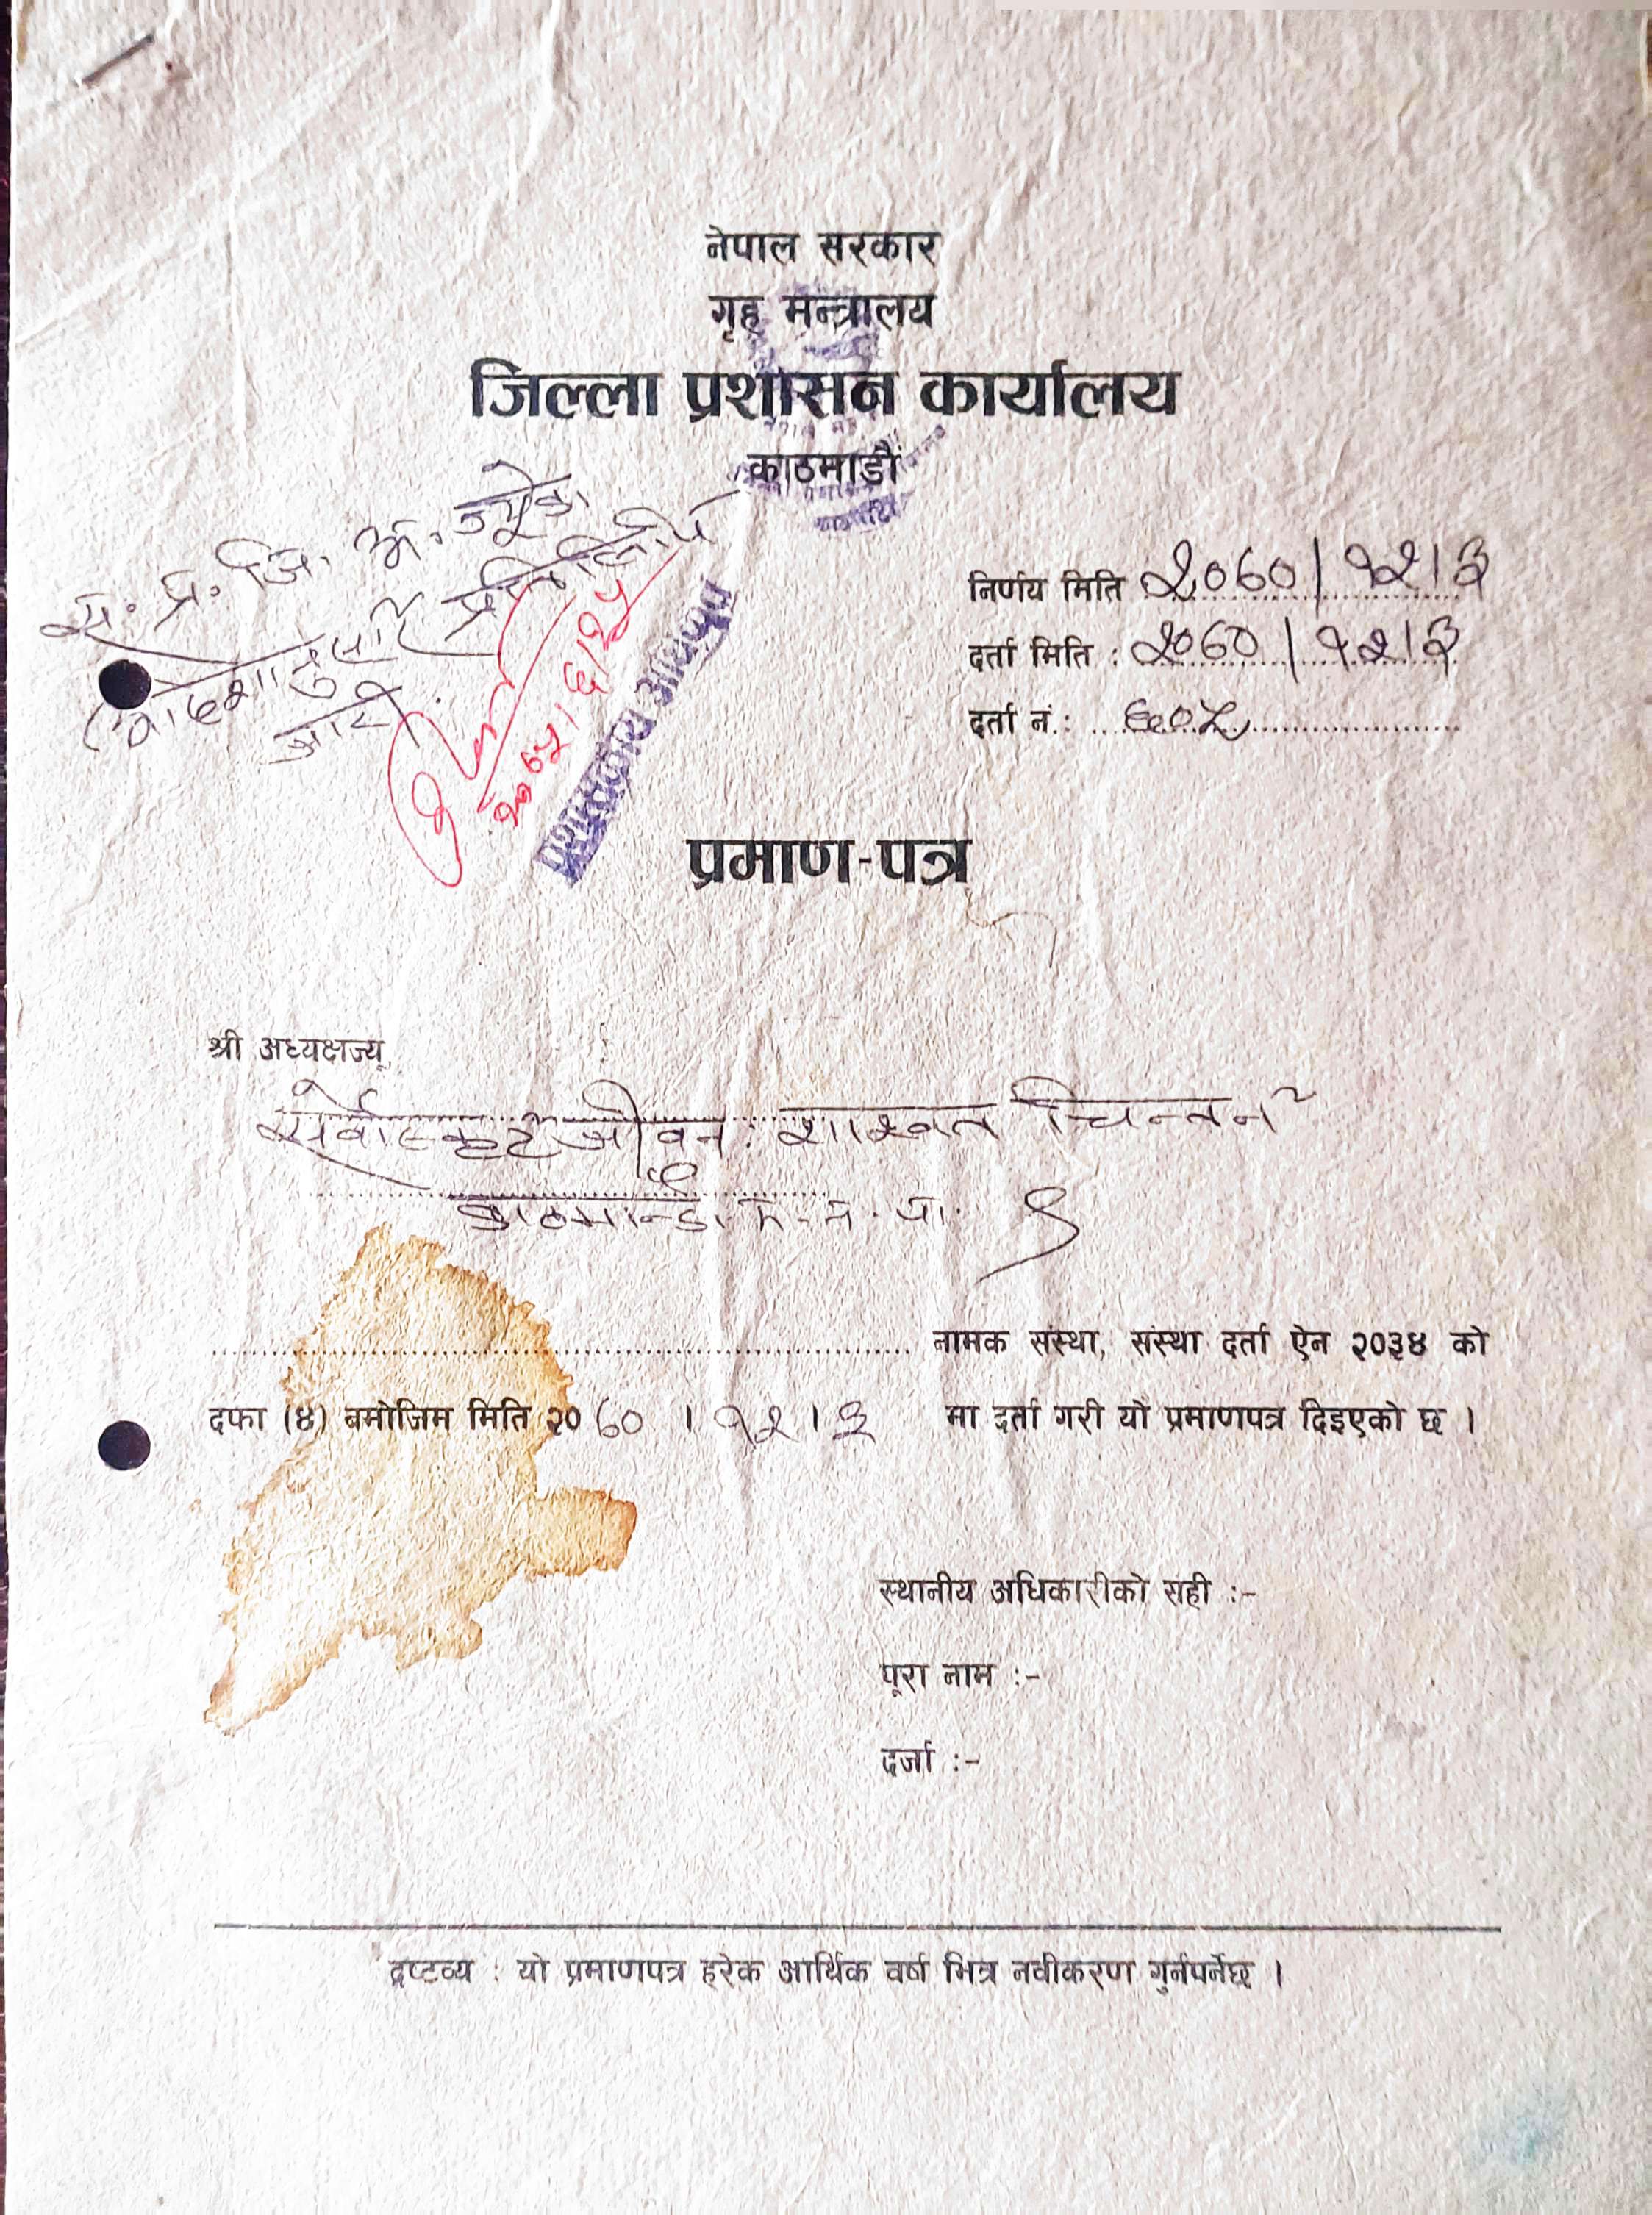 नेपाल सरकार
गृह मन्त्रालय
जिल्ला प्रशासन कार्यालय
काठमाडौं
स. प्र. जि. अ. ज्यूको
आदेशानुसार प्रतिलिपि
जारी
निर्णय मिति २०६०/१२/३
दर्ता मिति : २०६०/१२/३
दर्ता नं.:
प्रमाण-पत्र
श्री अध्यक्षज्यू
सर्वोत्कृष्ट जीवन शाश्वत चिन्तन
काठमान्डौ
नामक संस्था, संस्था दर्ता ऐन २०३४ को
दफा (४) बमोजिम मिति २०६०।१२।३ मा दर्ता गरी यो प्रमाणपत्र दिइएको छ ।
स्थानीय अधिकारीको सही :-
पूरा नाम :-
दर्जा :-
द्रष्टव्य : यो प्रमाणपत्र हरेक आर्थिक वर्ष भित्र नवीकरण गुर्नपर्नेछ ।